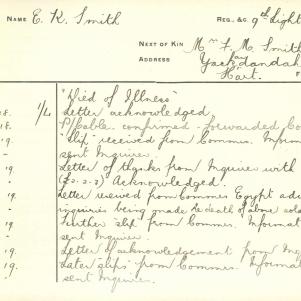 NAME E. K. Smith REG. & C. 9th Light
NEXT OF KIN Mr F. M. Smith
ADDRESS Yackandandah
"Died of Illness"
18. 1/4 Letter acknowledged
18. Cable confirmed - forwarded Co
19. "Slip" received from Commes. Inform
- sent Inquirer.
19 Letter of thanks from Inquirer with
- (£0.2.2) Acknowledged.
Letter received from Commes Egypt adv
inquiries being made re death of above sold
19. Further "slip" from Commes. Informat
- sent Inquirer.
19. Letter of acknowledgement from Inq
19. Later "slips" from Commes. Informat
sent Inquirer.